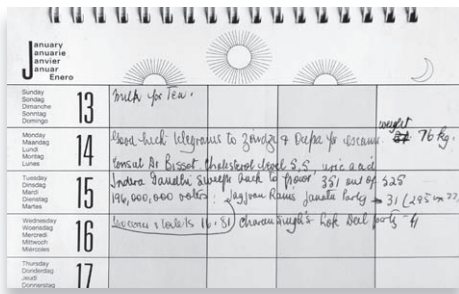 January
Januarie
Janvier
Januar
Enero
Sunday
Sondag
Dimanche
Sonntag
Domingo
13
Milk for Tea.
Monday
Maandag
Lundi
Montag
Lunes
14
Good luck telegrams to Zindzi & Oupa for exams.
weight
76 kg.
Consult Dr Bissot. Cholesterol level 5,5 uric acid
Tuesday
Dinsdag
Mardi
Dienstag
Martes
15
Indira Gandhi sweeps back to power 351 out of 525
196,000,000 votes. Jagjivan Rams Janata Party - 31 (295 in 77)
Wednesday
Woensdag
Mercredi
Mittwoch
Miércoles
16
16.81 Charan Singh's Lok Dal party - 41
Thursday
Donderdag
Jeudi
Donnerstag
17